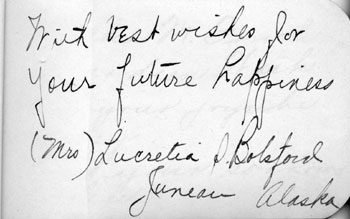 With best wishes for
your future happiness
(Mrs) Lucretia S. Bolsford
Juneau Alaska